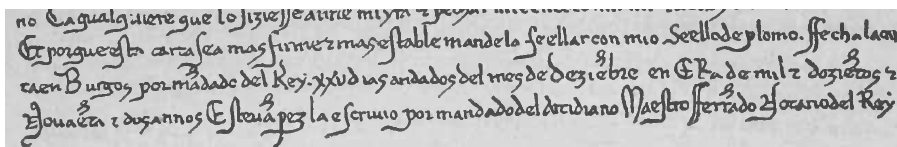 no. Ca qual quiere que lo fiziesse aurie mi yra
Et por que esta carta sea mas firme z mas estable mande la seellar con mio Seello de plomo. ffecha la car
ta en Burgos por mãdado del Rey. xxv dias andados del mes de deziẽbre en ERa de mil z dozietos z
Nouaẽta z dos annos Esteuã pez la escriuio por mandado del Arcidiano Maestro fferrãdo Notario del Rey